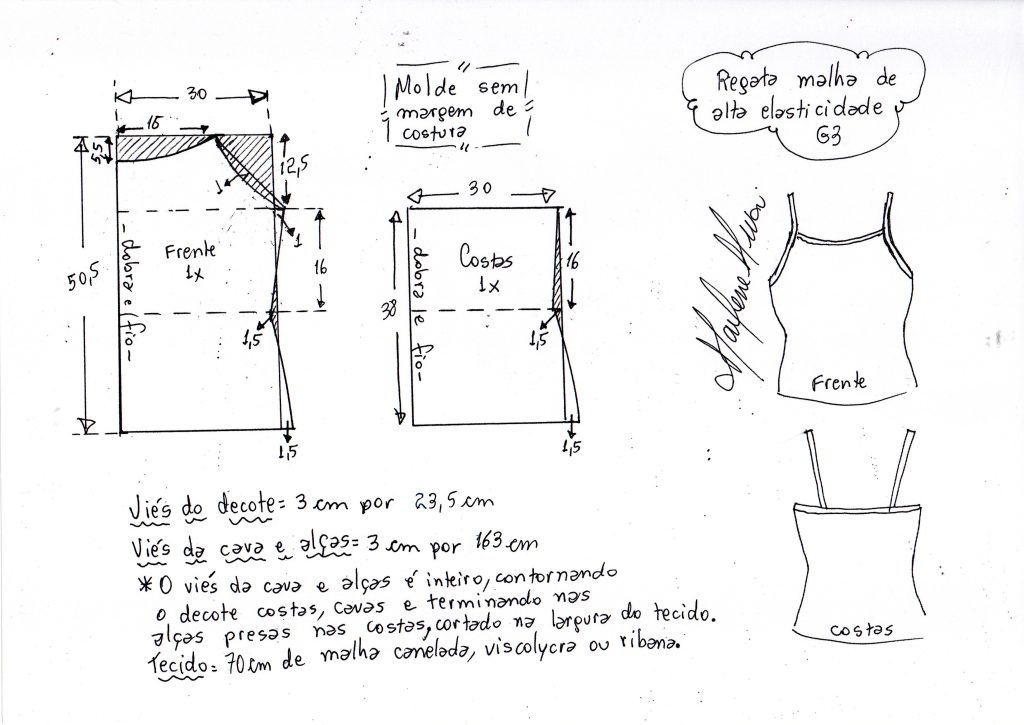 Regata malha de
alta elasticidade
G3
Molde sem
margem de
costura
30
15
5,5
12,5
1
1
Frente
1x
50,5
-dobra e fio-
16
1,5
1,5
30
Costas
1x
38
-dobra e fio-
16
1,5
1,5
Frente
costas
Viés do decote= 3 cm por 23,5 cm
Viés da cava e alças= 3 cm por 163 cm
* O viés da cava e alças é inteiro, contornando
o decote costas, cavas e terminando nas
alças presas nas costas, cortado na largura do tecido.
Tecido= 70 cm de malha canelada, viscolycra ou ribana.